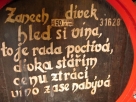 Zanech dívek
hled si vína,
to je rada poctivá,
dívka stářím
cenu ztrácí
víno zase nabývá
31620